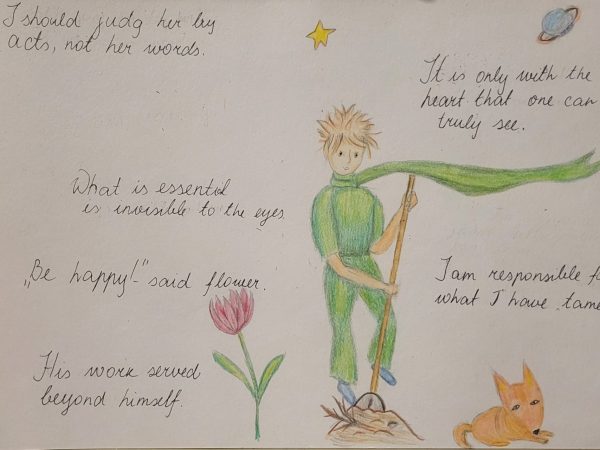 I should judg her by
acts, not her words.
It is only with the
heart that one can
truly see.
What is essentil
is invisible to the eyes
„Be happy!" said flower.
I am responsible
what I have
His work served
beyond himself.